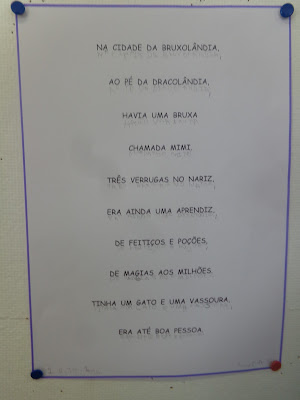 NA CIDADE DA BRUXOLÂNDIA,
AO PÉ DA DRACOLÂNDIA,
HAVIA UMA BRUXA
CHAMADA MIMI,
TRÊS VERRUGAS NO NARIZ,
ERA AINDA UMA APRENDIZ,
DE FEITIÇOS E POÇÕES,
DE MAGIAS AOS MILHÕES.
TINHA UM GATO E UMA VASSOURA,
ERA ATÉ BOA PESSOA.